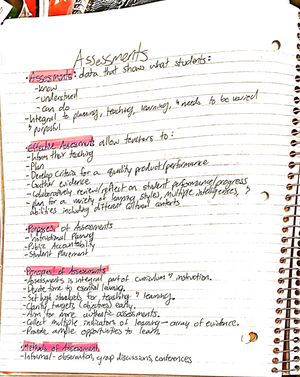 Assessments
• Assessments: data that shows what students:
- know
- understand
- can do
- Integral to planning, teaching, learning, & needs to be varied
& purposeful
• Effective Assessments allow teachers to:
- Inform their teaching
- Plan
- Develop criteria for a quality product/performance
- Gather evidence
- Collaboratively review/reflect on student performance/progress
- plan for a variety of learning styles, multiple intelligences, &
abilities including different cultural contexts
• Purposes of Assessments
- Instructional Planning
- Public Accountability
- Student Placement
• Principles of Assessments
- Assessments is integral part of curriculum & motivation.
- Devote time to essential learning.
- Set high standards for teaching & learning.
- Clarify targets (objectives) early.
- Aim for more authentic assessments.
- Collect multiple indicators of learning - array of evidence.
- Provide ample opportunities to learn.
• Methods of Assessment
- Informal - observation, group discussions, conferences